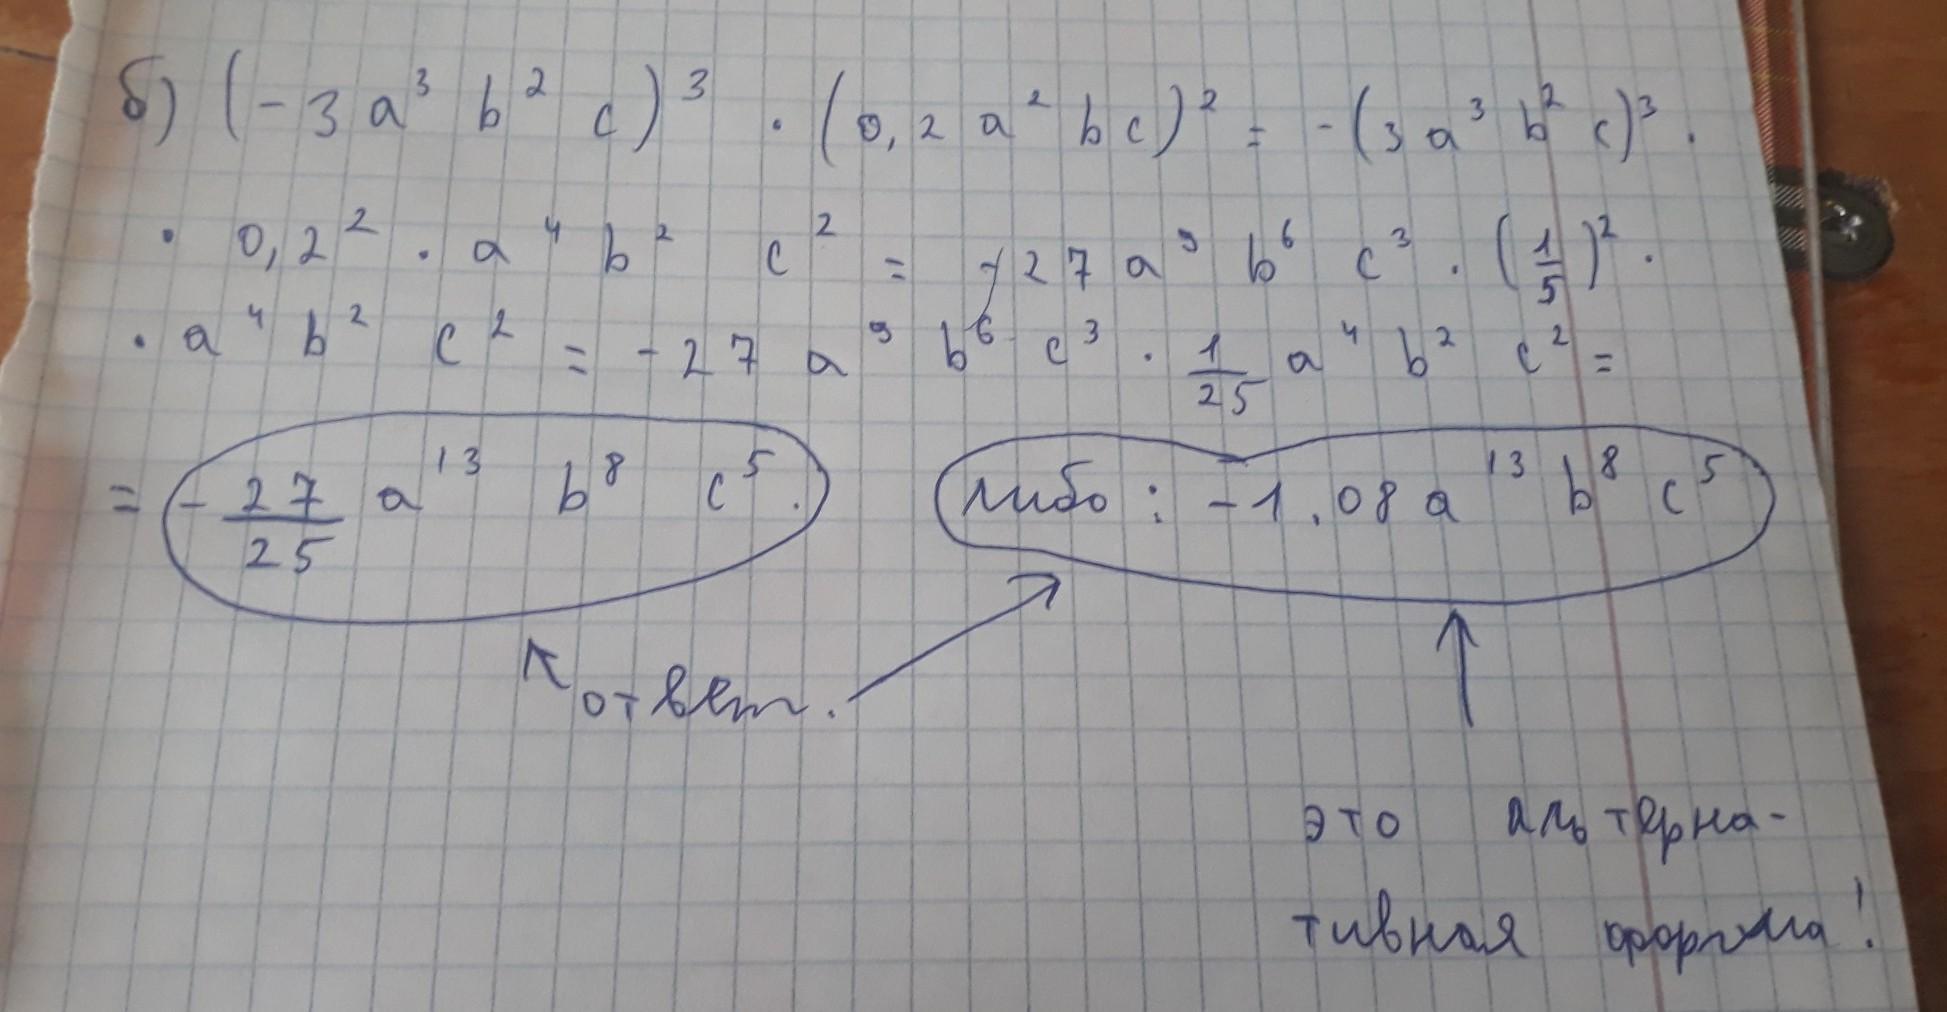 б) (-3a³ b² c)³ · (0,2 a² b c)² = -(3a³ b² c)³ ·
· 0,2² · a⁴ b² c² = -27 a⁹ b⁶ c³ · (1/5)² ·
· a⁴ b² c² = -27 a⁹ b⁶ c³ · 1/25 a⁴ b² c² =
= -27/25 a¹³ b⁸ c⁵. либо : -1.08 a¹³ b⁸ c⁵
ответ.
это альтерна-
тивная форма!